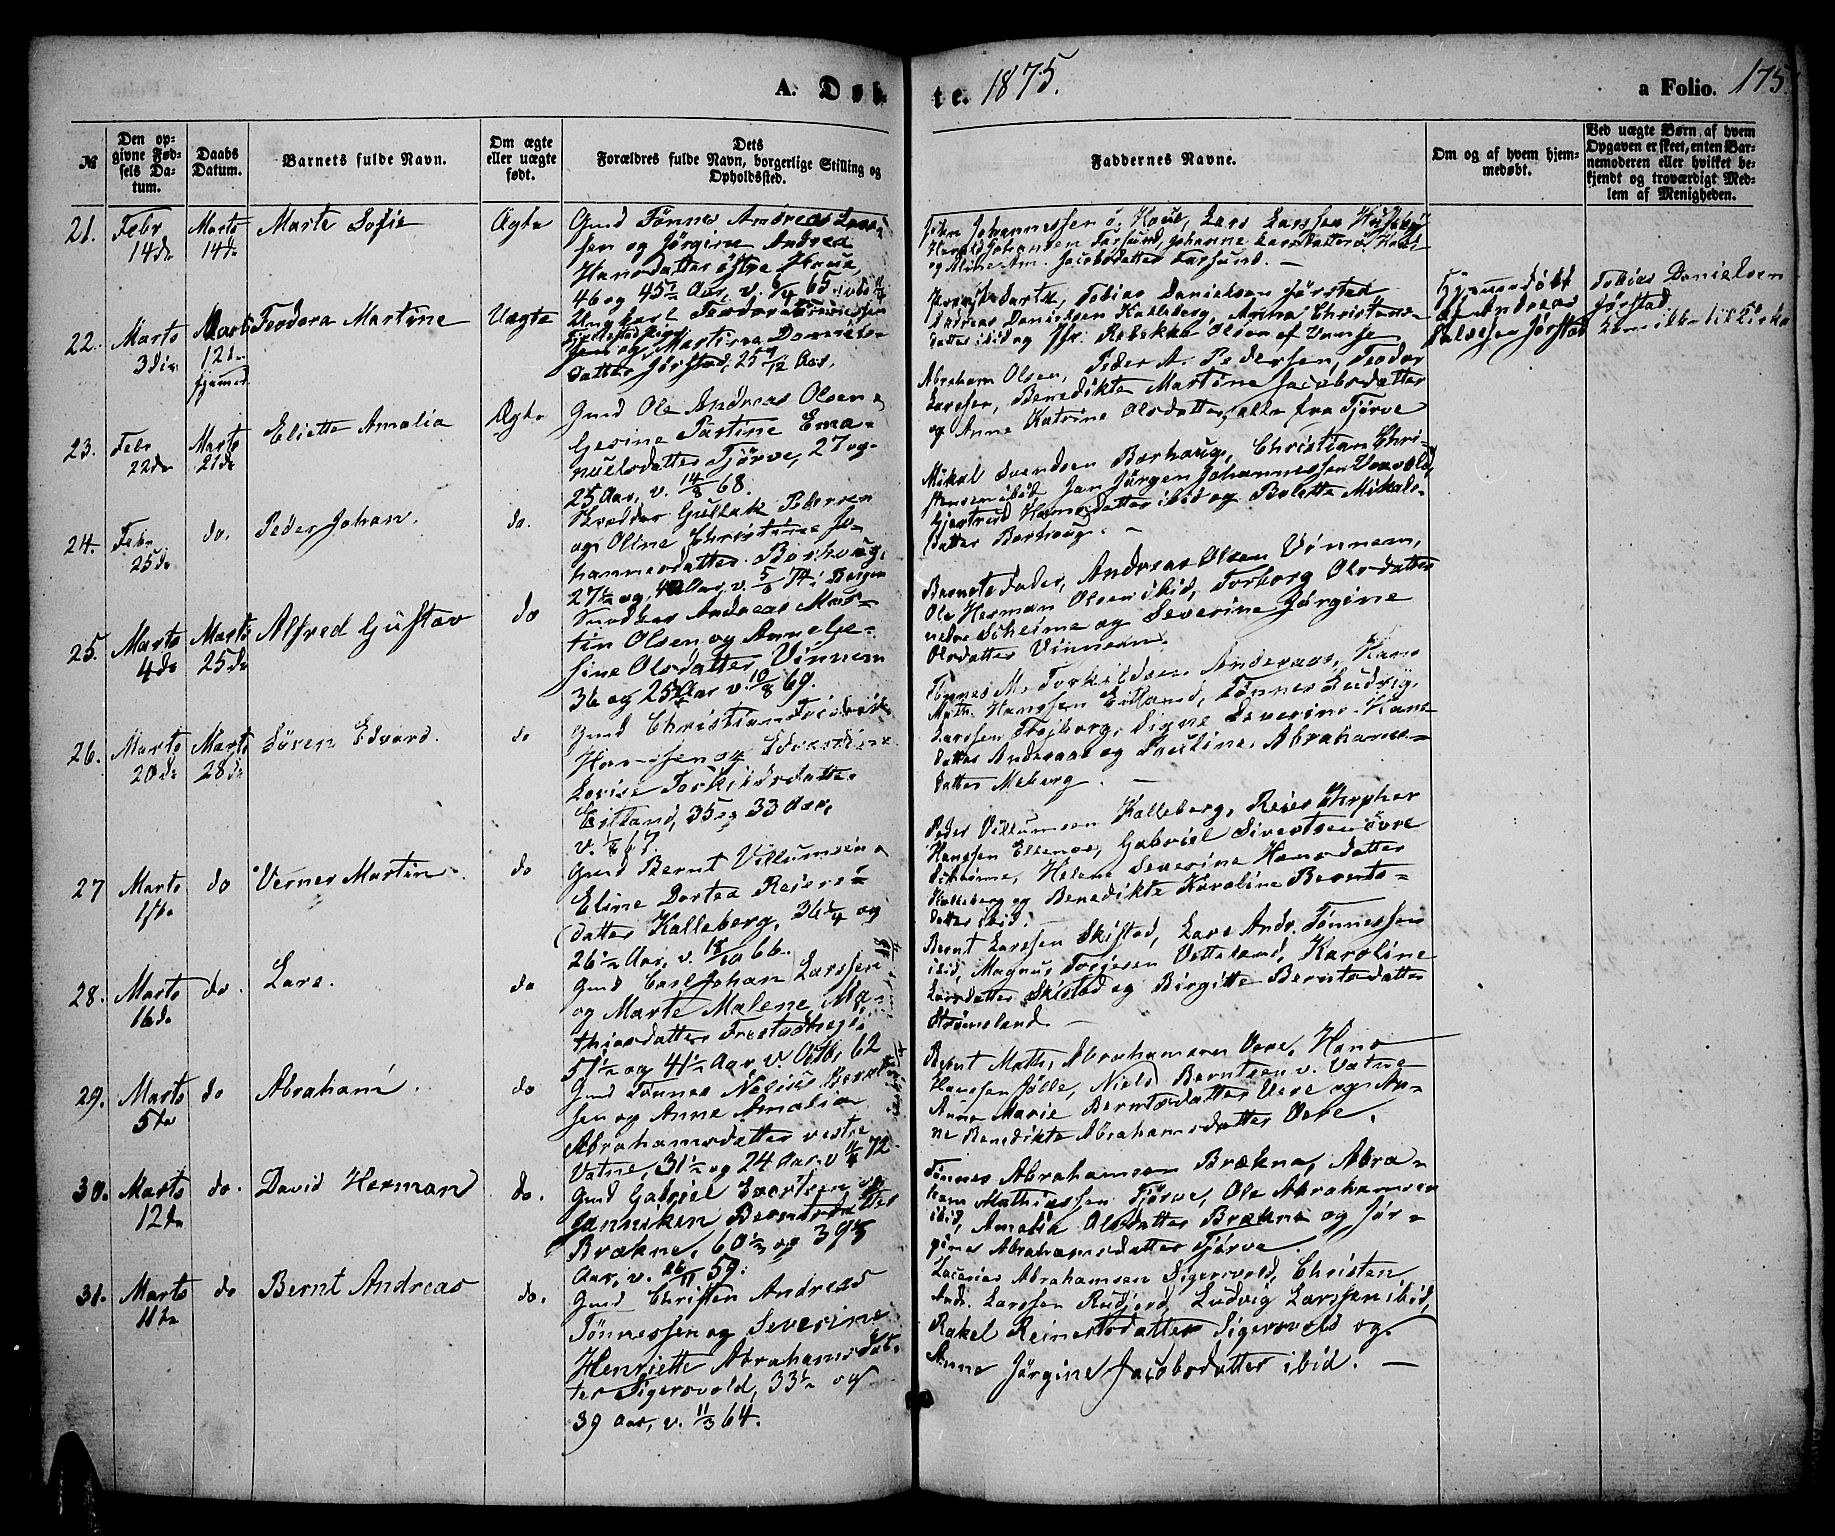 A. Døb-
te. 1875.
a Folio. 175
№
Den op-
givne Fød-
sels Da-
tum.
Daabs
Datum.
Barnets fulde Navn.
Om ægte
eller uægte
født.
Dets
Forældres fulde Navn, borgerlige Stilling og
Opholdssted.
Faddernes Navne.
Om og af hvem hjem-
medøbt.
Ved uægte Børn af hvem
Opgaven er skeet, enten Bar-
nemoderen eller hvilket be-
kjendt og troværdigt Med-
lem af Menigheden.
21.
Febr
14de
Marts
14de
Marte Sofie
Ægte
Gmd Tønnes Andreas Lars-
sen og Jørgine Andrea
Hansdatter østre Haue,
46 og 45½ Aar, v. 65
Johannessen ø. Haue, Lars Larssen Huseby
Johansen Farsund, Johanne Larsdatter ø. Haue
og Aline Am. Jacobsdatter Farsund. —
22.
Marts
3die
Marts
12te
hjemmed.
Teodora Martine
Uægte
Ungkarl Teodor
og Martine Daniels-
datter Jørstad, 25 9/12 Aar.
Tobias Danielsen Jørstad
Andreas Danielsen Kalleberg, Anna Christens-
datter ibid og Pfr. Rebekka Olsen af Vanse
Hjemmedøbt
af Andreas
Jørstad
Tobias Danielsen
Jørstad
23.
Febr
22de
Marts
21de
Eliette Amalia
Ægte
Gmd Ole Andreas Olsen
Gesine Tastine Ema-
nuelsdatter Tjørve, 27 og
25 Aar, v. 14/8 68.
Abraham Olsen, Peder A. Pedersen, Teodor
Larssen, Benedikte Martine Jacobsdatter
og Anne Katrine Olsdatter, alle fra Tjørve
24.
Febr
25de
do.
Peder Johan.
do.
Skrædder Gullak Pedersen
og Oline Christine Jo-
hannesdatter Borhaug,
27½ og 40 Aar, v. 5/8 74 i Bergen
Mikal Svendsen Borhaug, Christian Chri-
stensen ibid Jan Jørgen Johannessen
Gjertrud Hansdatter ibid og Bolette Mikals-
datter Borhaug. —
25.
Marts
4de
Marts
25de
Alfred Gustav
do
Snedker Andreas Mar-
tin Olsen og Anne Ge-
sine Olsdatter Vinnem
36 og 25 Aar, v. 10/8 69.
Barnets Fader, Andreas Olsen Vinnem,
Ole Herman Olsen ibid, Torborg Olsdatter
nedre Skeime og Severine Jørgine
Olsdatter Vinnem.
26.
Marts
20de
Marts
28de
Søren Edvard.
do
Gmd Christian Fredrik
Hanssen og Edvardine
Lovise Torkildsdatter
Eitland, 35 og 33 Aar,
v. 67.
Tønnes M. Torkildsen Andersaas, Hans
Math. Hanssen Eitland, Tønnes Ludvig
Larssen Frøjborg, Signe Severine Hans-
datter Andersaas og Pauline Abrahams-
datter Meberg. —
27
Marts
1ste
do
Verner Martin.
do
Gmd Bernt Villumsen og
Eline Dortea Reiers-
datter Kalleberg, 36¼ og
26½ Aar, v. 18/10 66.
Peder Villumsen Kalleberg, Reier Chrpher
Hanssen Ellenes, Gabriel Sivertsen øvre
Skeime, Helene Severine Hansdatter
Kalleberg og Benedikte Karoline Bernts-
datter ibid.
28.
Marts
16de
do.
Lars.
do
Gmd Carl Johan Larssen
og Marte Malene Ma-
thiasdatter Frestadhegi
51½ og 41½ Aar, v. Oktb. 62
Bernt Larssen Skistad, Lars Andr. Tønnessen
ibid, Magnus Torjesen Vetteland, Karoline
Larsdatter Skistad og Birgitte Berntsdatter
Strømsland. —
29.
Marts
5te
do
Abraham.
do
Gmd Tønnes Nelius Bernt-
sen og Anne Amalia
Abrahamsdatter vestre
Vatne, 31½ og 24 Aar, v 11/4 72
Bernt Math. Abrahamsen Ore, Hans
Hanssen Jølle, Niels Berntsen v. Vatne
Anne Marie Berntsdatter Ore og An-
ne Benedikte Abrahamsdatter Ore.
30.
Marts
12te
do.
David Herman
do.
Gmd Gabriel Evertsen og
Janniken Berntsdatter
Brækne, 60½ og 39
Aar, v. 26/11 59.
Tønnes Abrahamsen Brækne, Abra-
ham Mathiassen Tjørve, Ole Abrahamsen
ibid, Amalia Olsdatter Brækne og Jør-
gine Abrahamsdatter Tjørve.
31.
Marts
11te
do
Bernt Andreas
do.
Gmd Christen Andreas
Tønnessen og Severine
Henriette Abrahamsdat-
ter Sigersvold, 33½ og
39 Aar, v. 11/3 64.
Zacarias Abrahamsen Sigersvold, Christen
Andr. Larssen Rudjord, Ludvig Larssen ibid,
Rakel Reinertsdatter Sigersvold og
Anne Jørgine Jacobsdatter ibid. —